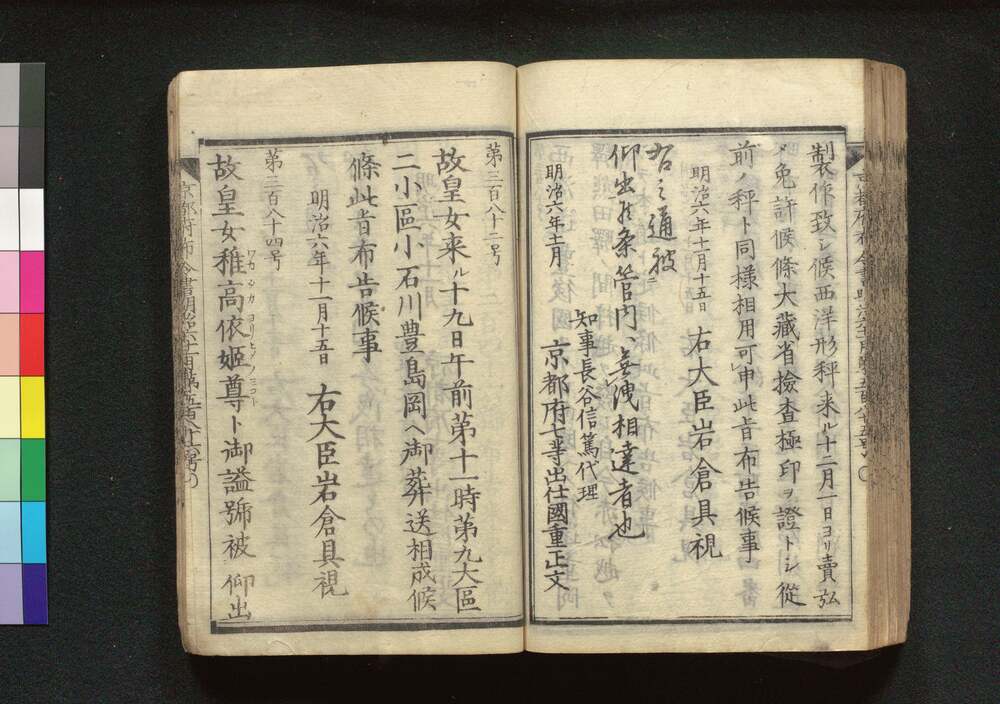 製作致シ候西洋形秤来ル十二月一日ヨリ賣弘
メ免許候條大藏省撿査極印ヲ證トシ從
前ノ秤ト同様相用可申此旨布告候事
明治六年十一月十五日 右大臣岩倉具視
右之通被
仰出候条管内ヘ無洩相達者也
知事長谷信篤代理
明治六年十一月 京都府七等出仕國重正文
第三百八十二号
故皇女来ル十九日午前第十一時第九大區
二小區小石川豊島岡ヘ御葬送相成候
條此旨布告候事
明治六年十一月十五日 右大臣岩倉具視
第三百八十四号
故皇女稚高依姫尊ト御謚號被 仰出